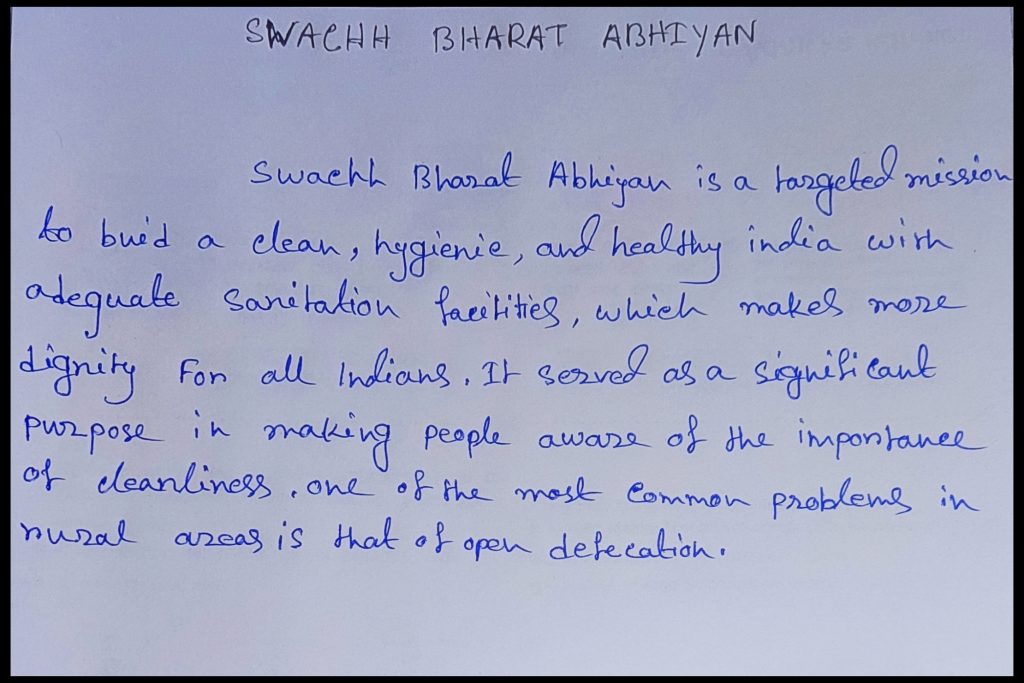 SWACHH BHARAT ABHIYAN
Swachh Bharat Abhiyan is a targeted mission
to buid a clean, hygienic, and healthy india with
adequate sanitation facilities, which makes more
dignity For all Indians. It served as a significant
purpose in making people aware of the importance
of cleanliness. one of the most common problems in
rural areas is that of open defecation.